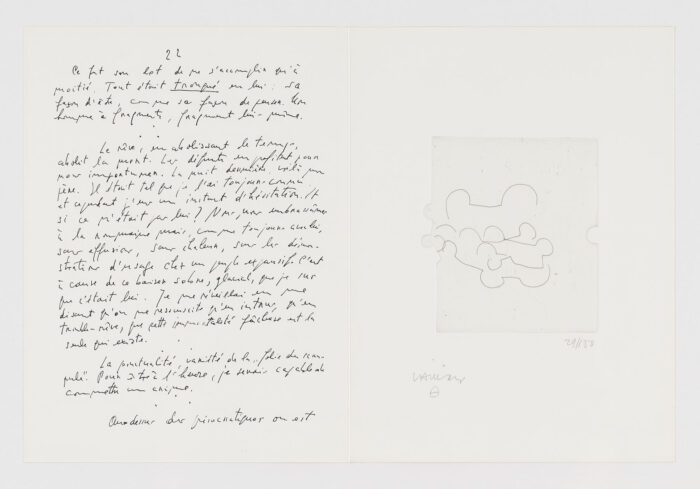 22
Ce fut son lot de ne s'accomplir qu'à
moitié. Tout était tronqué en lui : sa
façon d'être, comme sa façon de penser. Un
homme à fragments, fragment lui-même.
Le rêve, en abolissant le temps,
abolit la mort. Les défunts en profitent pour
nous importuner. La nuit dernière, voilà mon
père. Il était tel que je l'ai toujours connu
et cependant j'eus un instant d'hésitation. Et
si ce n'était pas lui ? Nous nous embrassâmes
à la roumaine mais, comme toujours avec lui,
sans effusion, sans chaleur, sans les démons-
trations d'usage chez un peuple expansif. C'est
à cause de ce baiser sobre, glacial, que je sus
que c'était lui. Je me réveillai en me
disant qu'on ne ressuscite qu'en intrus, qu'en
trouble-rêve, que cette immortalité fâcheuse est la
seule qui existe.
La ponctualité, variété de la "folie du scru-
pule". Pour être à l'heure, je serais capable de
commettre un crime.
Au-dessus des présocratiques on est